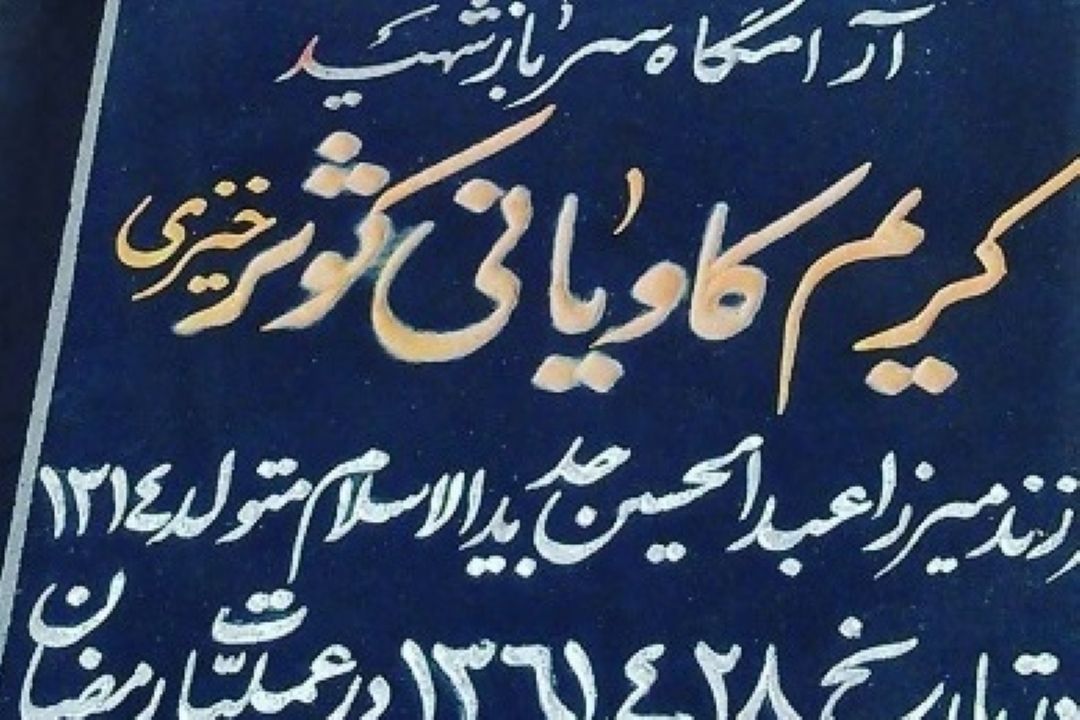 آرامگاه سرباز شهید
کریم کاویانی کوثر خیزی
فرزند میرزا عبدالحسین جدیدالاسلام متولد ۱۳۱٤
در تاریخ ۲۸ ٤ ۱۳٦۱ در عملیّات رمضان